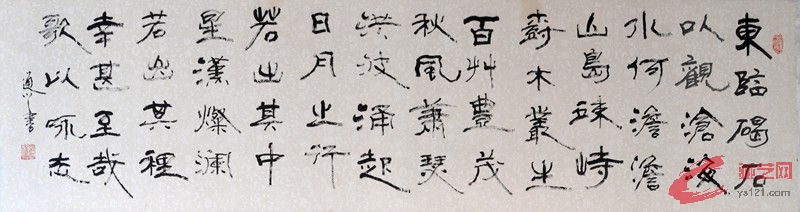 東臨碣石
以觀滄海
水何澹澹
山島竦峙
樹木叢生
百艸豐茂
秋風蕭瑟
洪波涌起
日月之行
若出其中
星漢燦瀾
若出其裡
幸甚至哉
歌以咏志
通川書
艺网
ys121.com